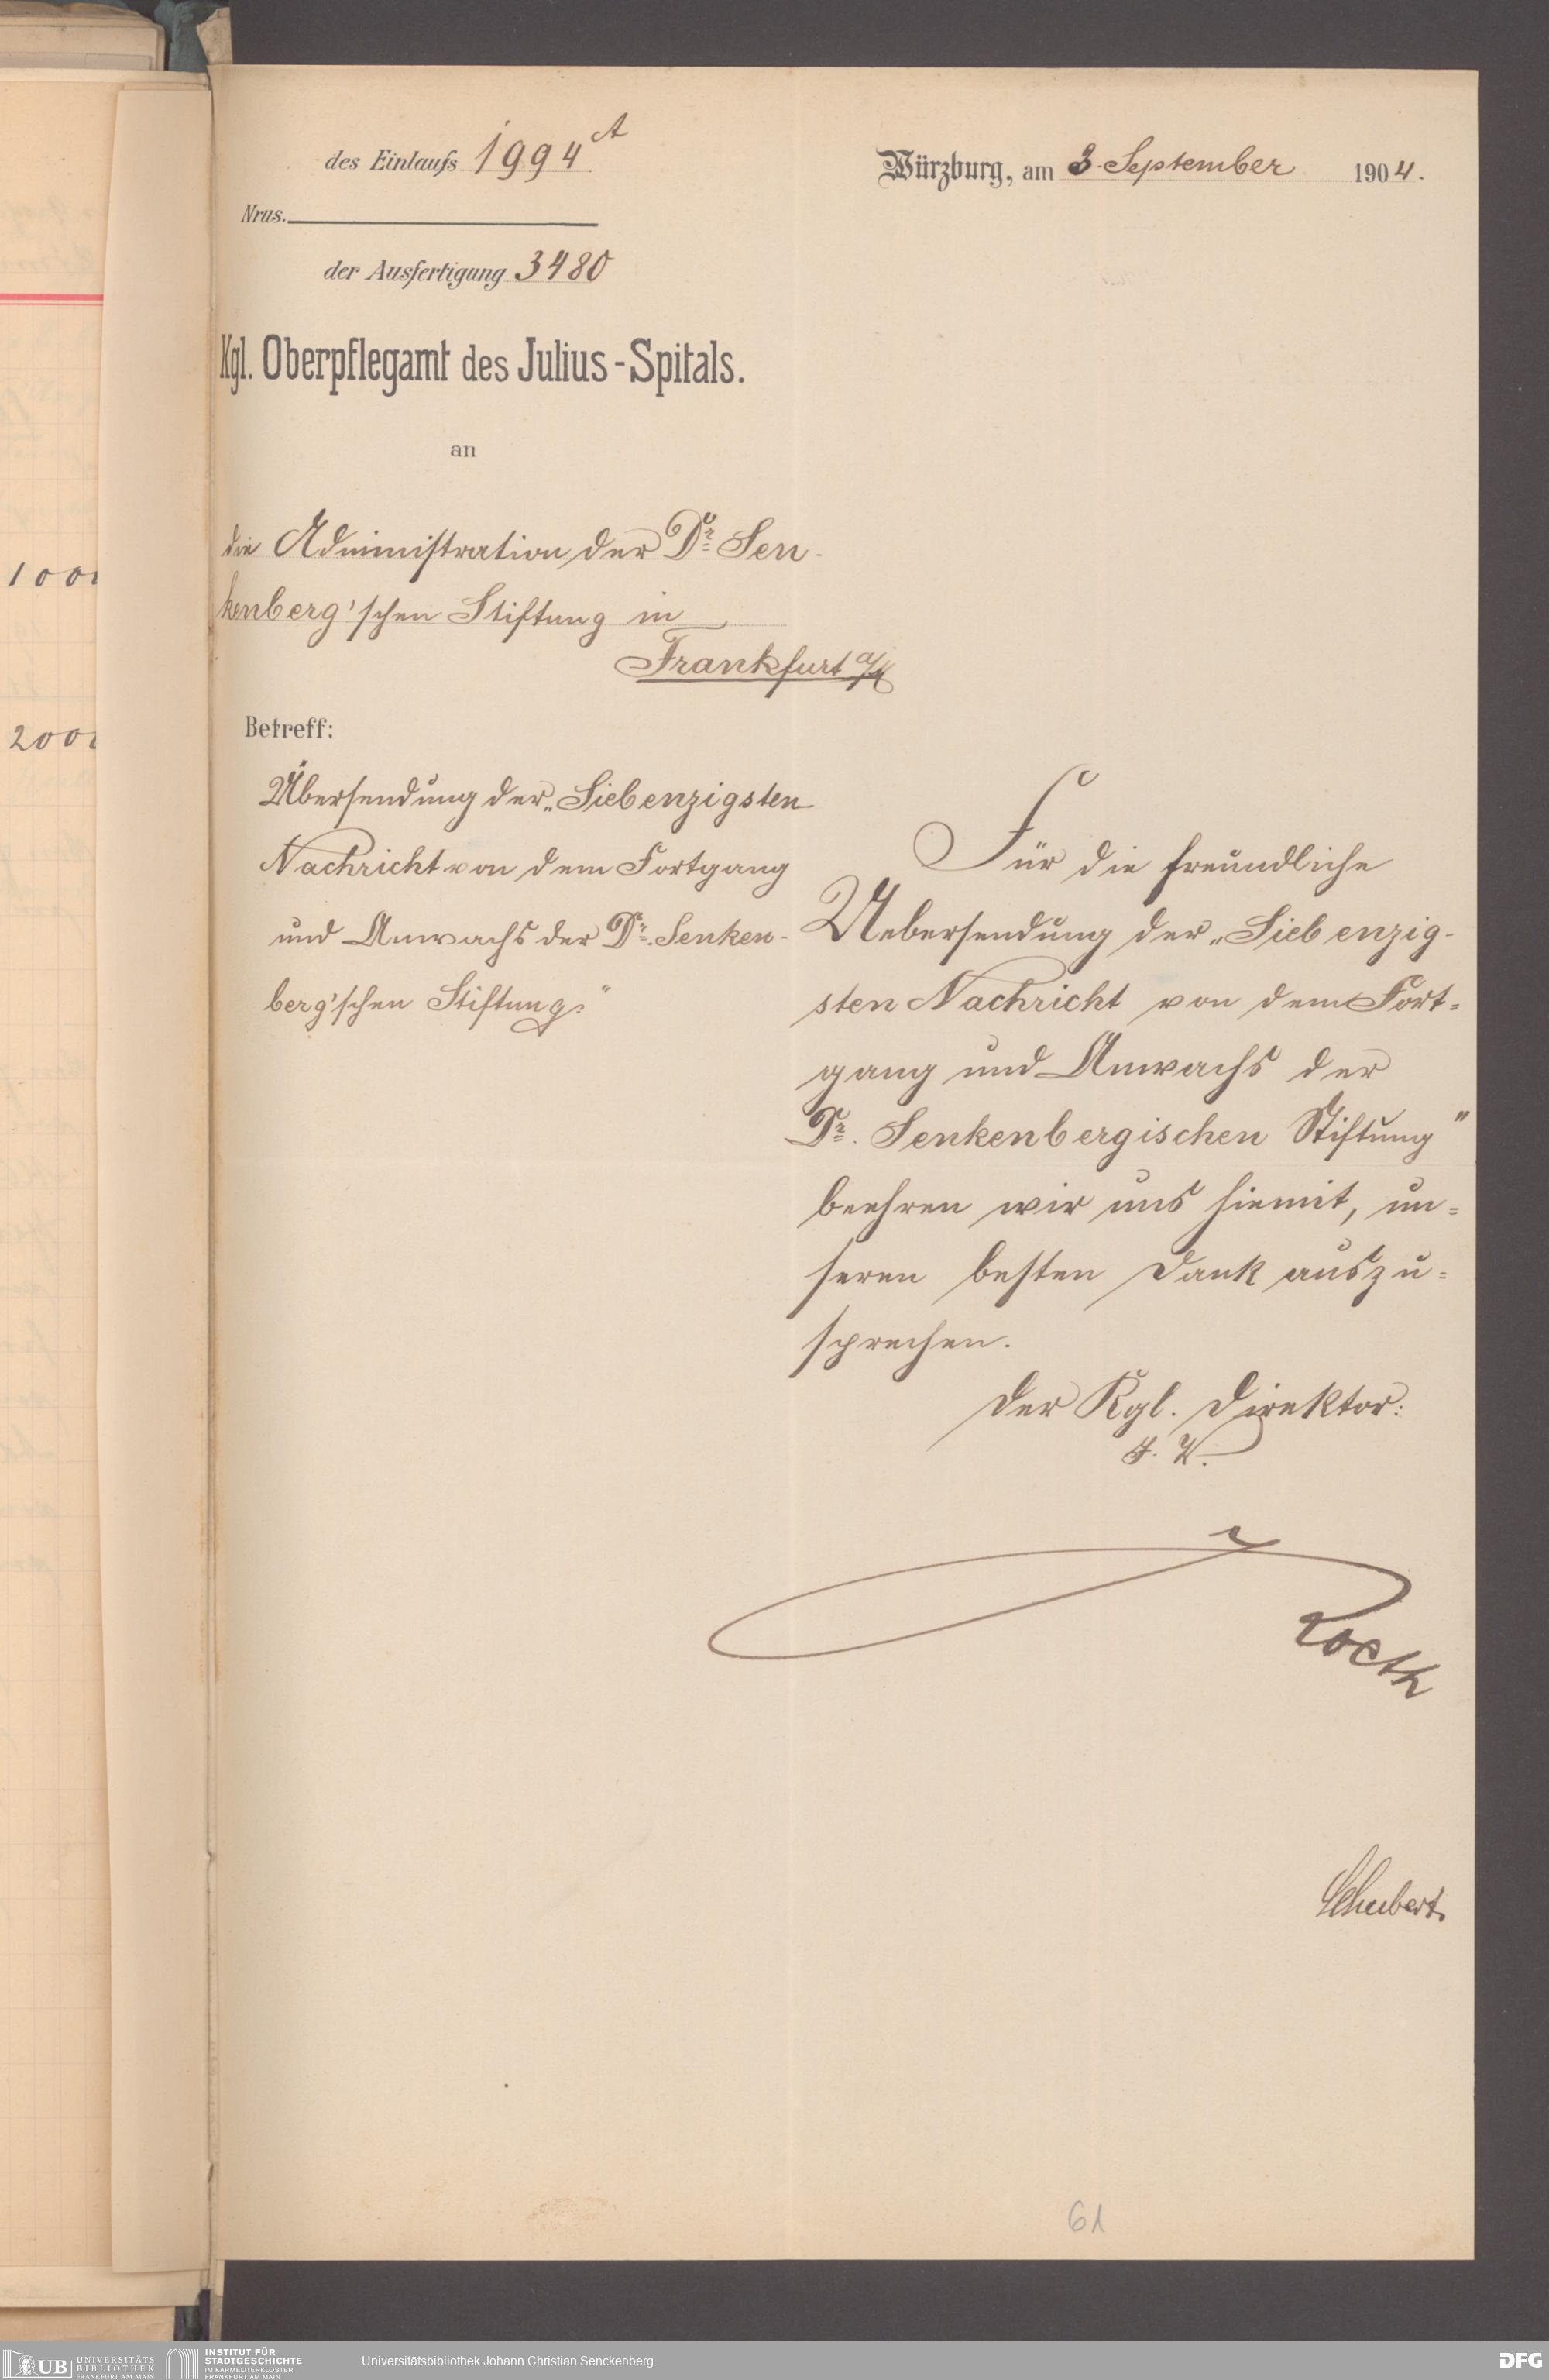 des Einlaufs 1994 A
Würzburg, am 3. September 1904.
Nrus.
der Ausfertigung 3480
Kgl. Oberpflegamt des Julius-Spitals.
an
die Administration der Dr. Sen-
kenberg'schen Stiftung in
Frankfurt a/M
Betreff:
Übersendung der „Siebenzigsten
Nachricht von dem Fortgang
und Anwachs der Dr. Senken-
berg'schen Stiftung."
Für die freundliche
Uebersendung der „Siebenzig-
sten Nachricht von dem Fort=
gang und Anwachs der
Dr. Senkenbergischen Stiftung"
beehren wir uns hiemit, un=
seren besten Dank auszu=
sprechen.
Der Kgl. Direktor:
Roeth
Schubert.
61
1000
200
UB UNIVERSITÄTS
BIBLIOTHEK
FRANKFURT AM MAIN
INSTITUT FÜR
STADTGESCHICHTE
IM KARMELITERKLOSTER
FRANKFURT AM MAIN
Universitätsbibliothek Johann Christian Senckenberg
DFG